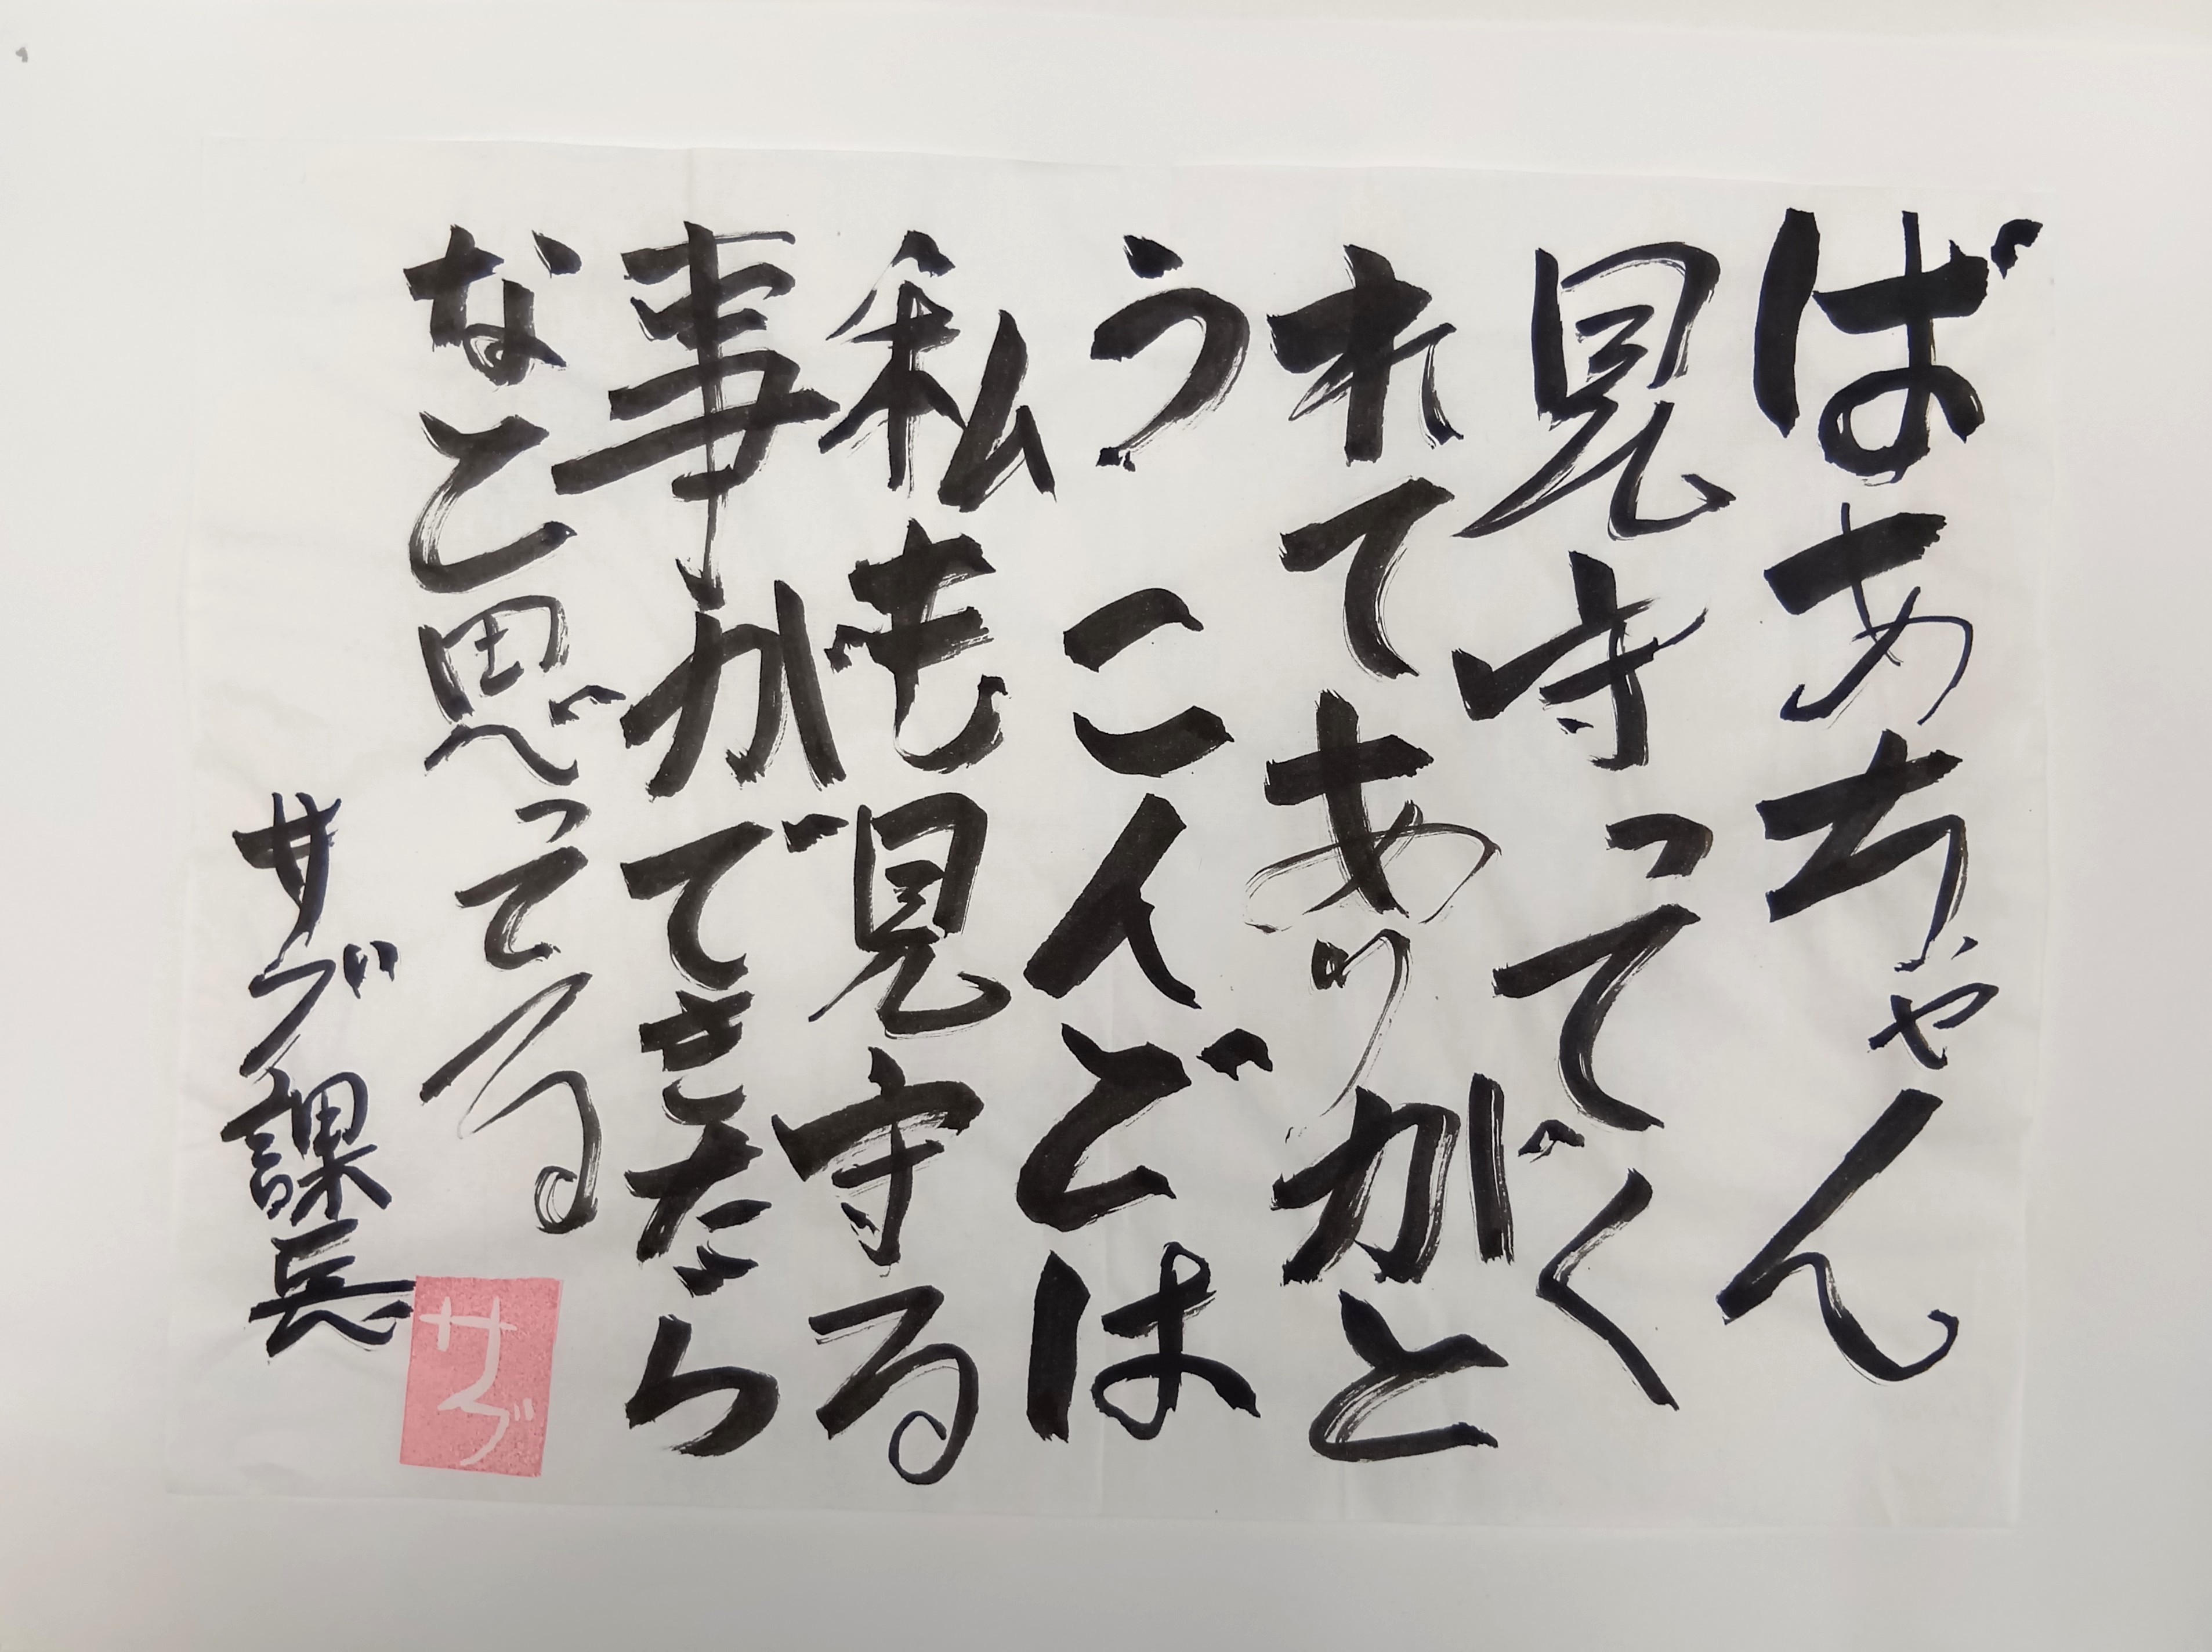 ばあちゃん
見守ってく
れてありがと
う こんどは
私も見守る
事ができたら
なと思ってる
サブ課長
サブ